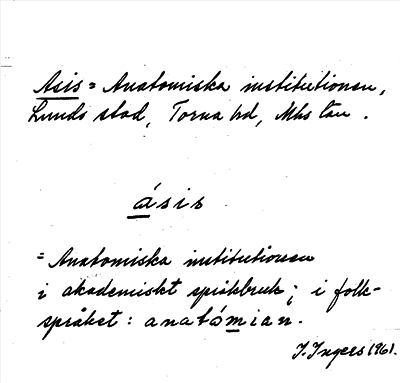 Asis = Anatomiska institutionen,
Lunds stad, Torna hd, Mhs län.
ásis
= Anatomiska institutionen
i akademiskt språkbruk; i folk-
språket: anatómian.
I. Ingers 1961.